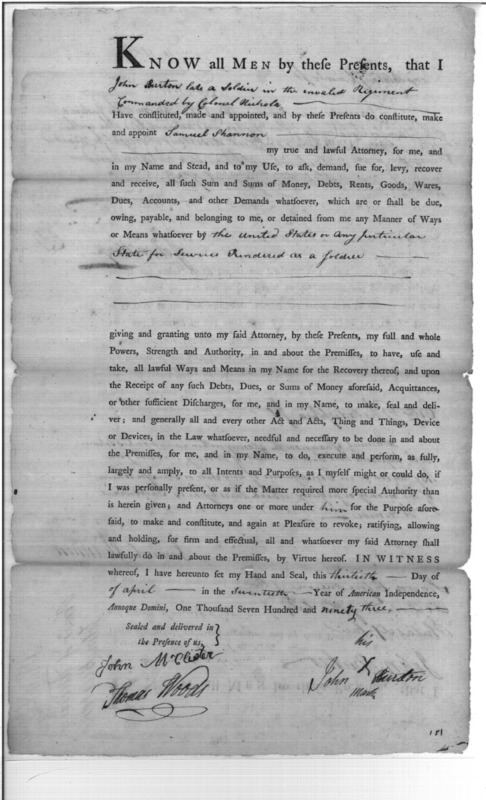 KNOW all MEN by theſe Preſents, that I
John Burton late a Soldier in the invalid Regiment
Commanded by Colonel Nichola
Have conſtituted, made and appointed, and by theſe Preſents do conſtitute, make
and appoint Samuel Shannon
my true and lawful Attorney, for me, and
in my Name and Stead, and to my Uſe, to aſk, demand, ſue for, levy, recover
and receive, all ſuch Sum and Sums of Money, Debts, Rents, Goods, Wares,
Dues, Accounts, and other Demands whatſoever, which are or ſhall be due,
owing, payable, and belonging to me, or detained from me any Manner of Ways
or Means whatſoever by the United States or Any Particular
State for Services Rendered as a Soldier
giving and granting unto my ſaid Attorney, by theſe Preſents, my full and whole
Powers, Strength and Authority, in and about the Premiſſes, to have, uſe and
take, all lawful Ways and Means in my Name for the Recovery thereof, and upon
the Receipt of any ſuch Debts, Dues, or Sums of Money aforeſaid, Acquittances,
or other ſufficient Diſcharges, for me, and in my Name, to make, ſeal and deli-
ver; and generally all and every other Act and Acts, Thing and Things, Device
or Devices, in the Law whatſoever, needful and neceſſary to be done in and about
the Premiſſes, for me, and in my Name, to do, execute and perform, as fully,
largely and amply, to all Intents and Purpoſes, as I myſelf might or could do, if
I was perſonally preſent, or as if the Matter required more ſpecial Authority than
is herein given; and Attorneys one or more under him for the Purpoſe afore-
ſaid, to make and conſtitute, and again at Pleaſure to revoke; ratifying, allowing
and holding, for firm and effectual, all and whatſoever my ſaid Attorney ſhall
lawfully do in and about the Premiſſes, by Virtue hereof. IN WITNESS
whereof, I have hereunto ſet my Hand and Seal, this thirtieth Day of
of April in the Seventeenth Year of American Independence,
Annoque Domini, One Thouſand Seven Hundred and ninety three,
Sealed and delivered in
the Preſence of us,
his
John McClister
John X Burton
Thomas Woods
Mark
181